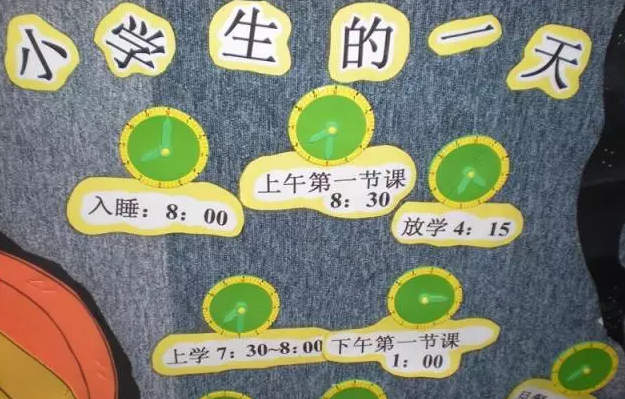 小学生的一天
入睡：8：00
上午第一节课
8：30
放学 4：15
上学 7：30~8：00
下午第一节课
1：00